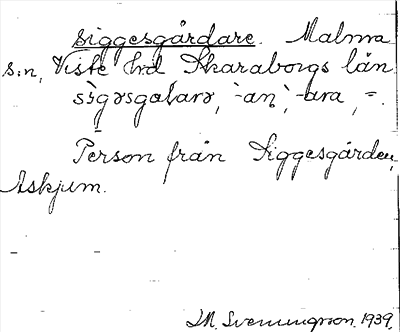 Siggesgårdare. Malma
s:n, Viste hrd Skaraborgs län
Person från Siggesgården,
Askjum.
J.M. Svenungsson. 1939.